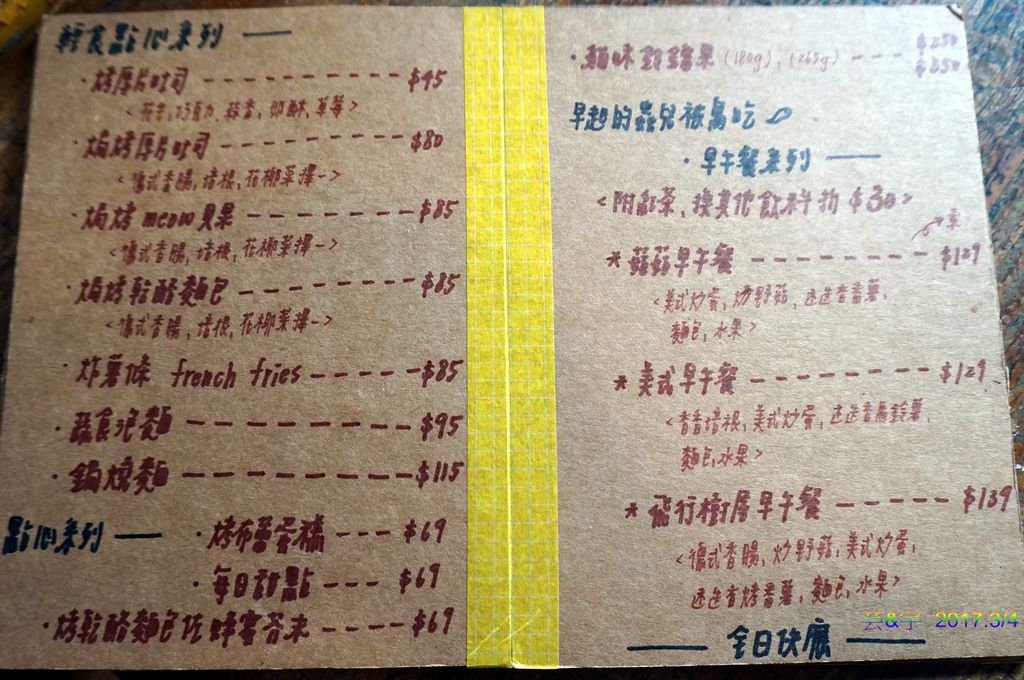 輕食點心系列
·烤厚片吐司 $45
<花生,巧克力,蒜香,奶酥,草莓>
·焗烤厚片吐司 $80
<德式香腸,培根,花椰菜擇一>
·焗烤meow貝果 $85
<德式香腸,培根,花椰菜擇一>
·焗烤乾酪麵包 $85
<德式香腸,培根,花椰菜擇一>
·炸薯條 french fries $85
·蔬食泡麵 $95
·鍋燒麵 $115
點心系列
·烤布蕾蛋糕 $69
·每日甜點 $69
·烤乾酪麵包佐蜂蜜芥末 $69
(180g), (265g) $250
$350
早起的蟲兒被鳥吃
·早午餐系列
<附紅茶,換其他飲料折$30>
*菇菇早午餐 $129
素
<美式炒蛋,炒野菇,迷迭香香薯,
麵包,水果>
*美式早午餐 $129
<香香培根,美式炒蛋,迷迭香馬鈴薯,
麵包,水果>
*飛行樹屋早午餐 $139
<德式香腸,炒野菇,美式炒蛋,
迷迭香烤香薯,麵包,水果>
全日供應
芸&宇 2017.3/4